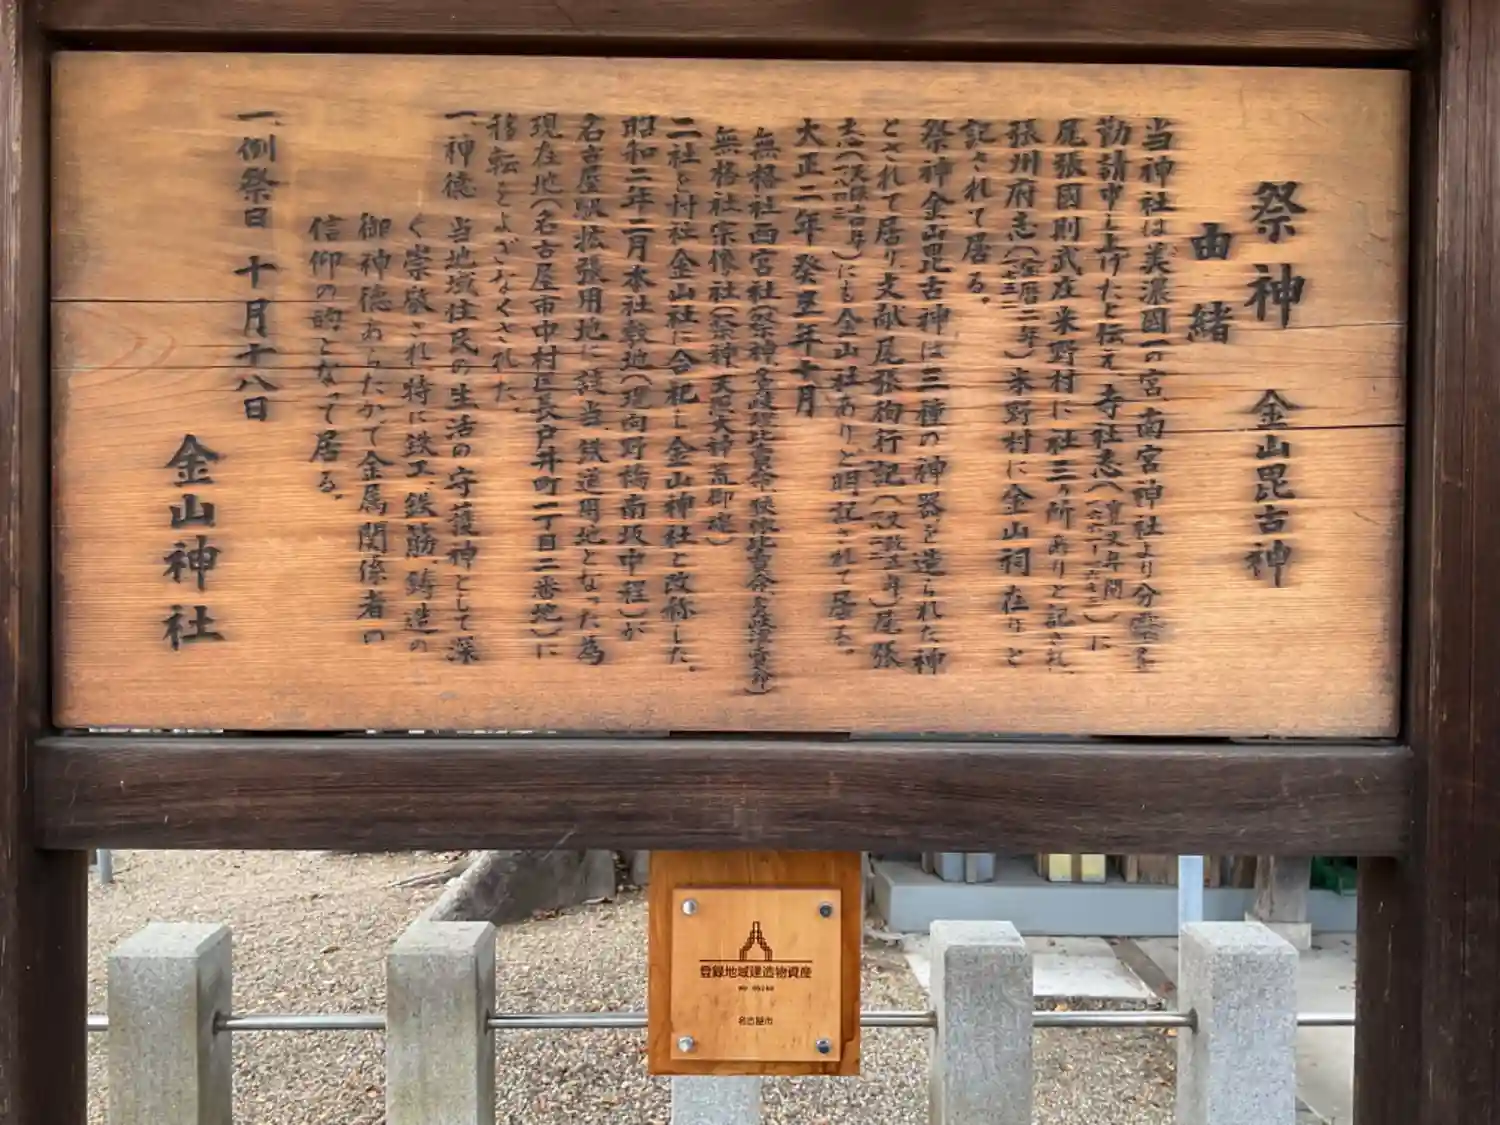 祭神　金山毘古神
由緒
当神社は美濃國一の宮、南宮神社より分霊を
勧請申し上げたと伝え、寺社志（寛文年間）に
尾張國則武庄米野村に社三ヶ所ありと記され、
張州府志（宝暦二年）米野村に金山祠在りと
記されて居る。
祭神金山毘古神は三種の神器を造られた神
とされて居り、文献尾張徇行記（文政五年）尾張
志（天保十四年）にも金山社ありと明記されて居る。
大正二年癸丑年十月
無格社西宮社（祭神、
無格社宗像社（祭神、天照大神荒御魂）
二社を村社金山社に合祀し金山神社と改称した。
昭和二年二月本社敷地（現向野橋南坂中程）が
名古屋駅拡張用地に該当、鉄道用地となった為
現在地（名古屋市中村区長戸井町一丁目二番地）に
移転をよぎなくされた。
一、神徳　当地域住民の生活の守護神として深
く崇敬され特に鉄工、鉄筋、鋳造の
御神徳あらたかで金属関係者の
信仰の的となって居る。
一、例祭日　十月十八日
金山神社
登録地域建造物資産
名古屋市